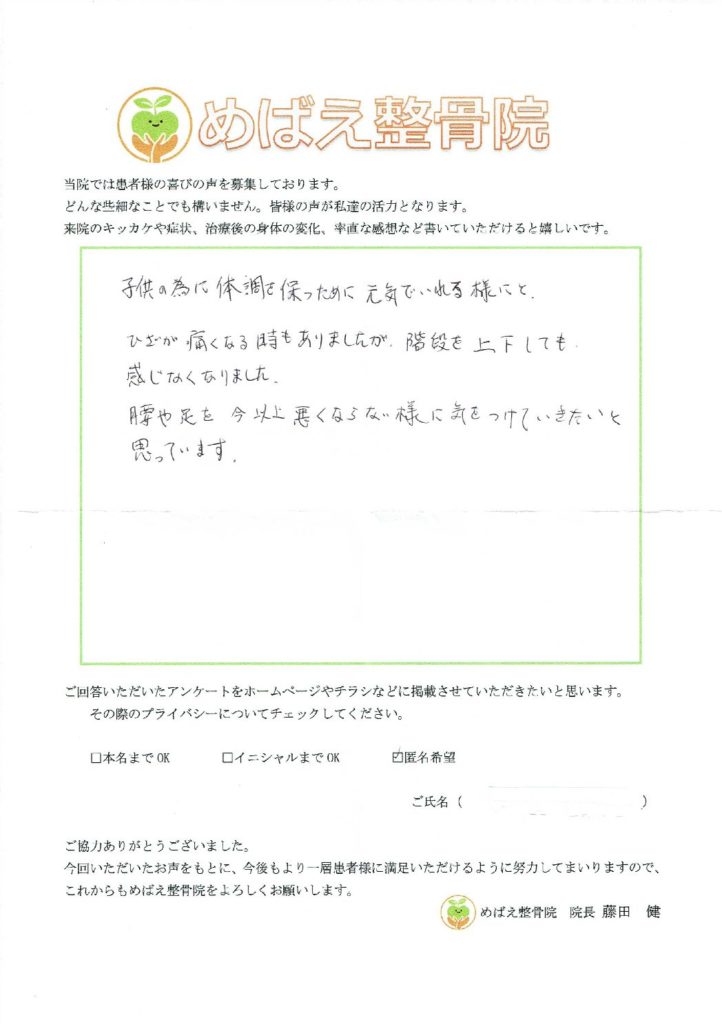 めばえ整骨院
当院では患者様の喜びの声を募集しております。
どんな些細なことでも構いません。皆様の声が私達の活力となります。
来院のキッカケや症状、治療後の身体の変化、率直な感想など書いていただけると嬉しいです。
子供の為に体調を保つために元気でいれる様にと、
ひざが痛くなる時もありましたが、階段を上下しても
感じなくなりました。
腰や足を今以上悪くならない様に気をつけていきたいと
思っています。
ご回答いただいたアンケートをホームページやチラシなどに掲載させていただきたいと思います。
その際のプライバシーについてチェックしてください。
□本名まで OK □イニシャルまで OK ☑匿名希望
ご氏名（ ）
ご協力ありがとうございました。
今回いただいたお声をもとに、今後もより一層患者様に満足いただけるように努力してまいりますので、
これからもめばえ整骨院をよろしくお願いします。
めばえ整骨院 院長 藤田 健